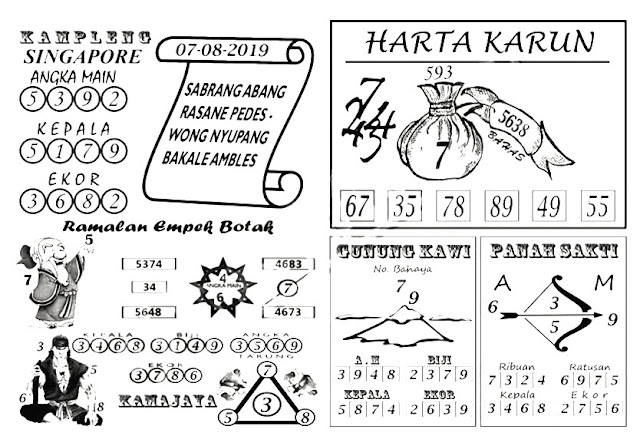 KAMPLENG
SINGAPORE
ANGKA MAIN
5 3 9 2
KEPALA
5 1 7 9
EKOR
3 6 8 2
07-08-2019
SABRANG ABANG
RASANE PEDES -
WONG NYUPANG
BAKALE AMBLES
Ramalan Empek Botak
5
7
5374
34
5648
4
ANGKA MAIN
6
4683
7
4673
3
6
5
18
KEPALA
3 4 6 8
BIJI
3 1 4 9
ANGKA
3 5 6 9
TARUNG
EKOR
3 7 8 6
KAMAJAYA
7
3
5
8
HARTA KARUN
593
7
5638
BAHAS
67 35 78 89 49 55
GUNUNG KAWI
No. Bahaya
7
9
A.M
3 9 4 8
BIJI
2 3 7 9
KEPALA
5 8 7 4
EKOR
2 6 3 9
PANAH SAKTI
A M
6
3
5
9
Ribuan
7 3 2 4
Ratusan
6 9 7 5
Kepala
3 4 6 8
Ekor
2 7 5 6